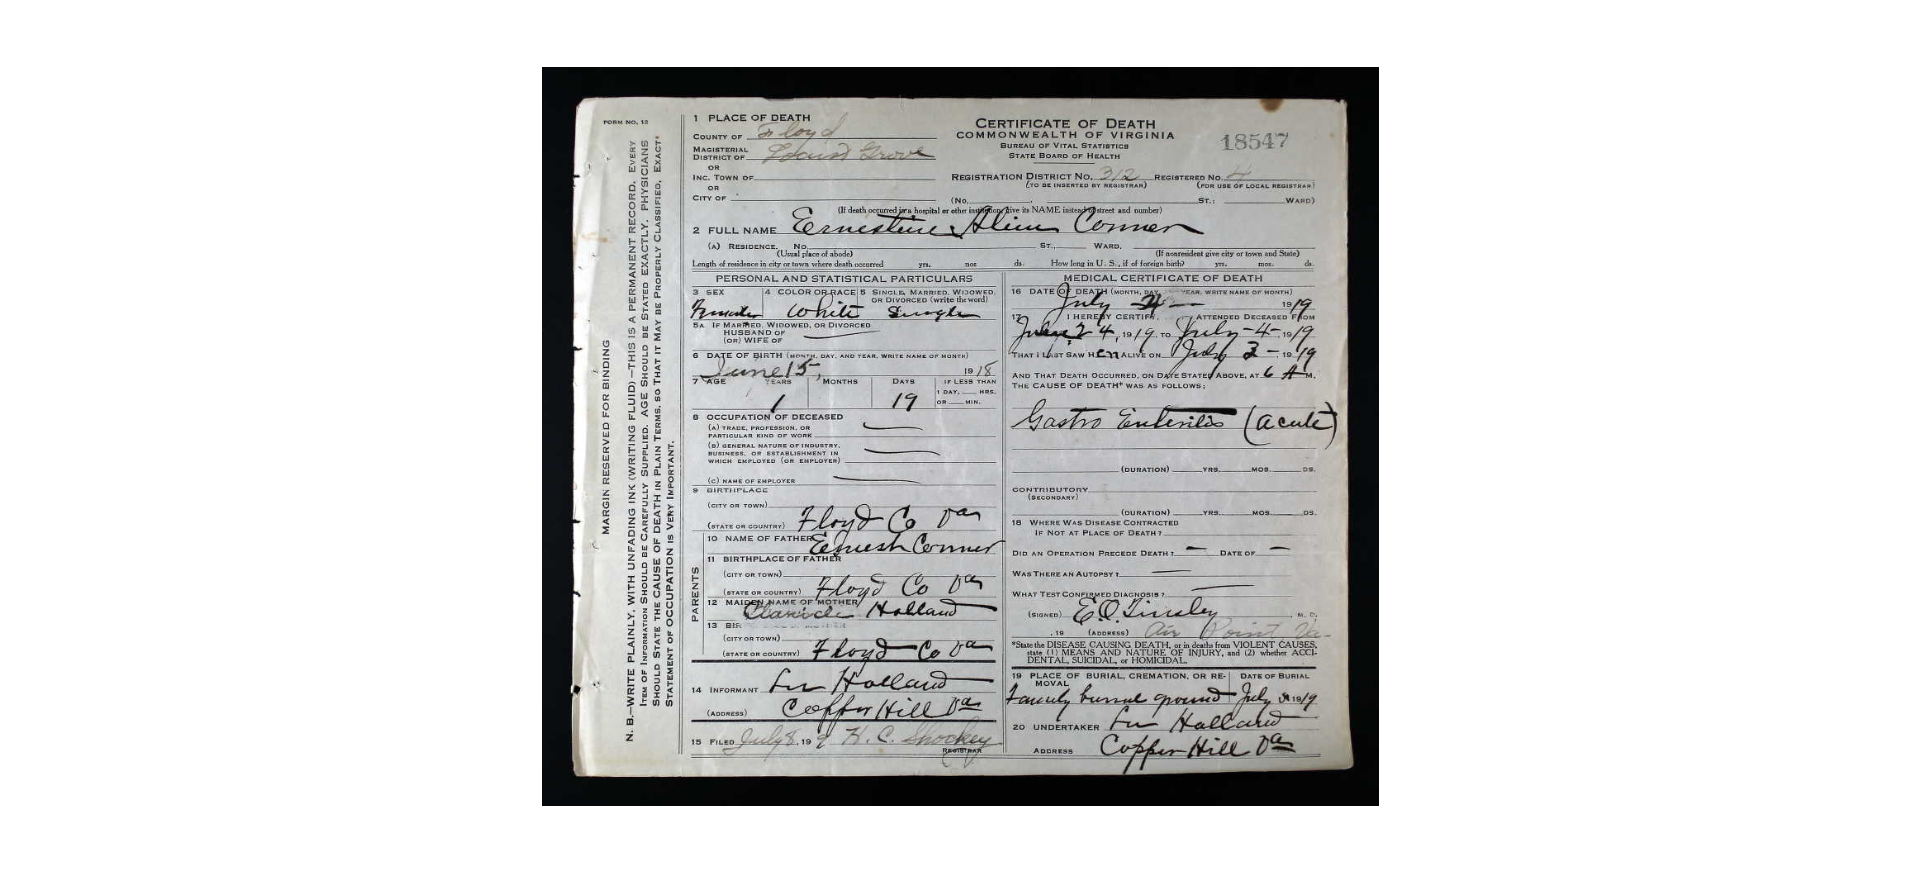 FORM NO. 12
MARGIN RESERVED FOR BINDING
N. B.—WRITE PLAINLY, WITH UNFADING INK (WRITING FLUID)—THIS IS A PERMANENT RECORD. EVERY
ITEM OF INFORMATION SHOULD BE CAREFULLY SUPPLIED. AGE SHOULD BE STATED EXACTLY. PHYSICIANS
SHOULD STATE THE CAUSE OF DEATH IN PLAIN TERMS, SO THAT IT MAY BE PROPERLY CLASSIFIED. EXACT
STATEMENT OF OCCUPATION IS VERY IMPORTANT.
1 PLACE OF DEATH
COUNTY OF Floyd
MAGISTERIAL
DISTRICT OF Locust Grove
OR
INC. TOWN OF
OR
CITY OF
CERTIFICATE OF DEATH
COMMONWEALTH OF VIRGINIA
BUREAU OF VITAL STATISTICS
STATE BOARD OF HEALTH
18547
REGISTRATION DISTRICT NO. 312 REGISTERED NO. 4
(TO BE INSERTED BY REGISTRAR) (FOR USE OF LOCAL REGISTRAR)
(No. ST.; WARD)
(If death occurred in a hospital or other institution, give its NAME instead of street and number)
2 FULL NAME Ernestine Conner
(A) RESIDENCE. No. ST., WARD.
(Usual place of abode) (If nonresident give city or town and State)
Length of residence in city or town where death occurred yrs. mos. ds. How long in U. S., if of foreign birth? yrs. mos. ds.
PERSONAL AND STATISTICAL PARTICULARS
3 SEX 4 COLOR OR RACE 5 SINGLE, MARRIED, WIDOWED,
OR DIVORCED (write the word)
Female White Single
5A IF MARRIED, WIDOWED, OR DIVORCED
HUSBAND OF
(OR) WIFE OF
6 DATE OF BIRTH (MONTH, DAY, AND YEAR, WRITE NAME OF MONTH)
June 15, 1918
7 AGE YEARS MONTHS DAYS IF LESS THAN
1 DAY, HRS.
OR MIN.
1 19
8 OCCUPATION OF DECEASED
(A) TRADE, PROFESSION, OR
PARTICULAR KIND OF WORK
(B) GENERAL NATURE OF INDUSTRY,
BUSINESS, OR ESTABLISHMENT IN
WHICH EMPLOYED (OR EMPLOYER)
(C) NAME OF EMPLOYER
9 BIRTHPLACE
(CITY OR TOWN)
(STATE OR COUNTRY) Floyd Co Va
PARENTS
10 NAME OF FATHER Ernest Conner
11 BIRTHPLACE OF FATHER
(CITY OR TOWN)
(STATE OR COUNTRY) Floyd Co Va
12 MAIDEN NAME OF MOTHER
Holland
13
(CITY OR TOWN)
(STATE OR COUNTRY) Floyd Co Va
14 INFORMANT Holland
(ADDRESS) Copper Hill Va
15 FILED July 8, 19 9 H. C. Shockey
REGISTRAR
MEDICAL CERTIFICATE OF DEATH
16 DATE OF DEATH (MONTH, DAY, YEAR, WRITE NAME OF MONTH)
July 4 1919
17 I HEREBY CERTIFY, ATTENDED DECEASED FROM
24, 1919, TO July-4-, 1919
THAT I LAST SAW HER ALIVE ON July 3-, 1919
AND THAT DEATH OCCURRED, ON DATE STATED ABOVE, AT 6 A M.
THE CAUSE OF DEATH* WAS AS FOLLOWS:
Gastro Enteritis (acute)
(DURATION) YRS. MOS. DS.
CONTRIBUTORY
(SECONDARY)
(DURATION) YRS. MOS. DS.
18 WHERE WAS DISEASE CONTRACTED
IF NOT AT PLACE OF DEATH?
DID AN OPERATION PRECEDE DEATH? — DATE OF —
WAS THERE AN AUTOPSY?
WHAT TEST CONFIRMED DIAGNOSIS?
(SIGNED) E.O. Tinsley M. D.
, 19 (ADDRESS) Air Point Va-
*State the DISEASE CAUSING DEATH, or in deaths from VIOLENT CAUSES,
state (1) MEANS AND NATURE OF INJURY, and (2) whether ACCI-
DENTAL, SUICIDAL, or HOMICIDAL.
19 PLACE OF BURIAL, CREMATION, OR RE-
MOVAL DATE OF BURIAL
Family burial ground July 1919
20 UNDERTAKER Holland
ADDRESS Copper Hill Va